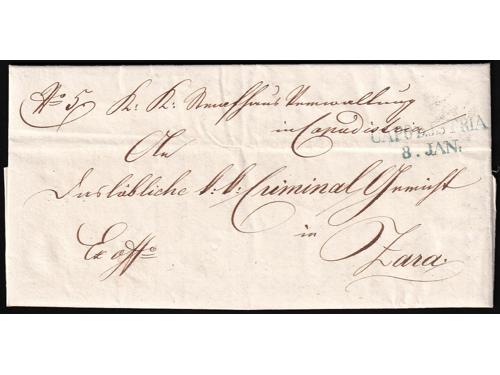 No 5 K: K: Strafhaus Verwaltung
in Capodistria
CAPODISTRIA
8. JAN:
An
Das löbliche k: k: Criminal Gericht
in
Ex offo
Zara.